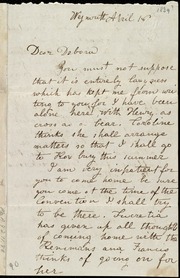 Weymouth, April 18
1839
Dear Deborah
You must not suppose
that it is entirely laziness
which has kept me from wri
ting to you, for I have been
alone here with Henry, as
cross as a bear. Caroline
thinks she shall arrange
matters so that I shall go
to Roxbury this summer
I am very impatient for
you to come home. be sure
you come at the time of the
Convention I shall try
to be there. Lucretia
has given up all thoughts
of coming home with the
and Frances
thinks of going on for
her